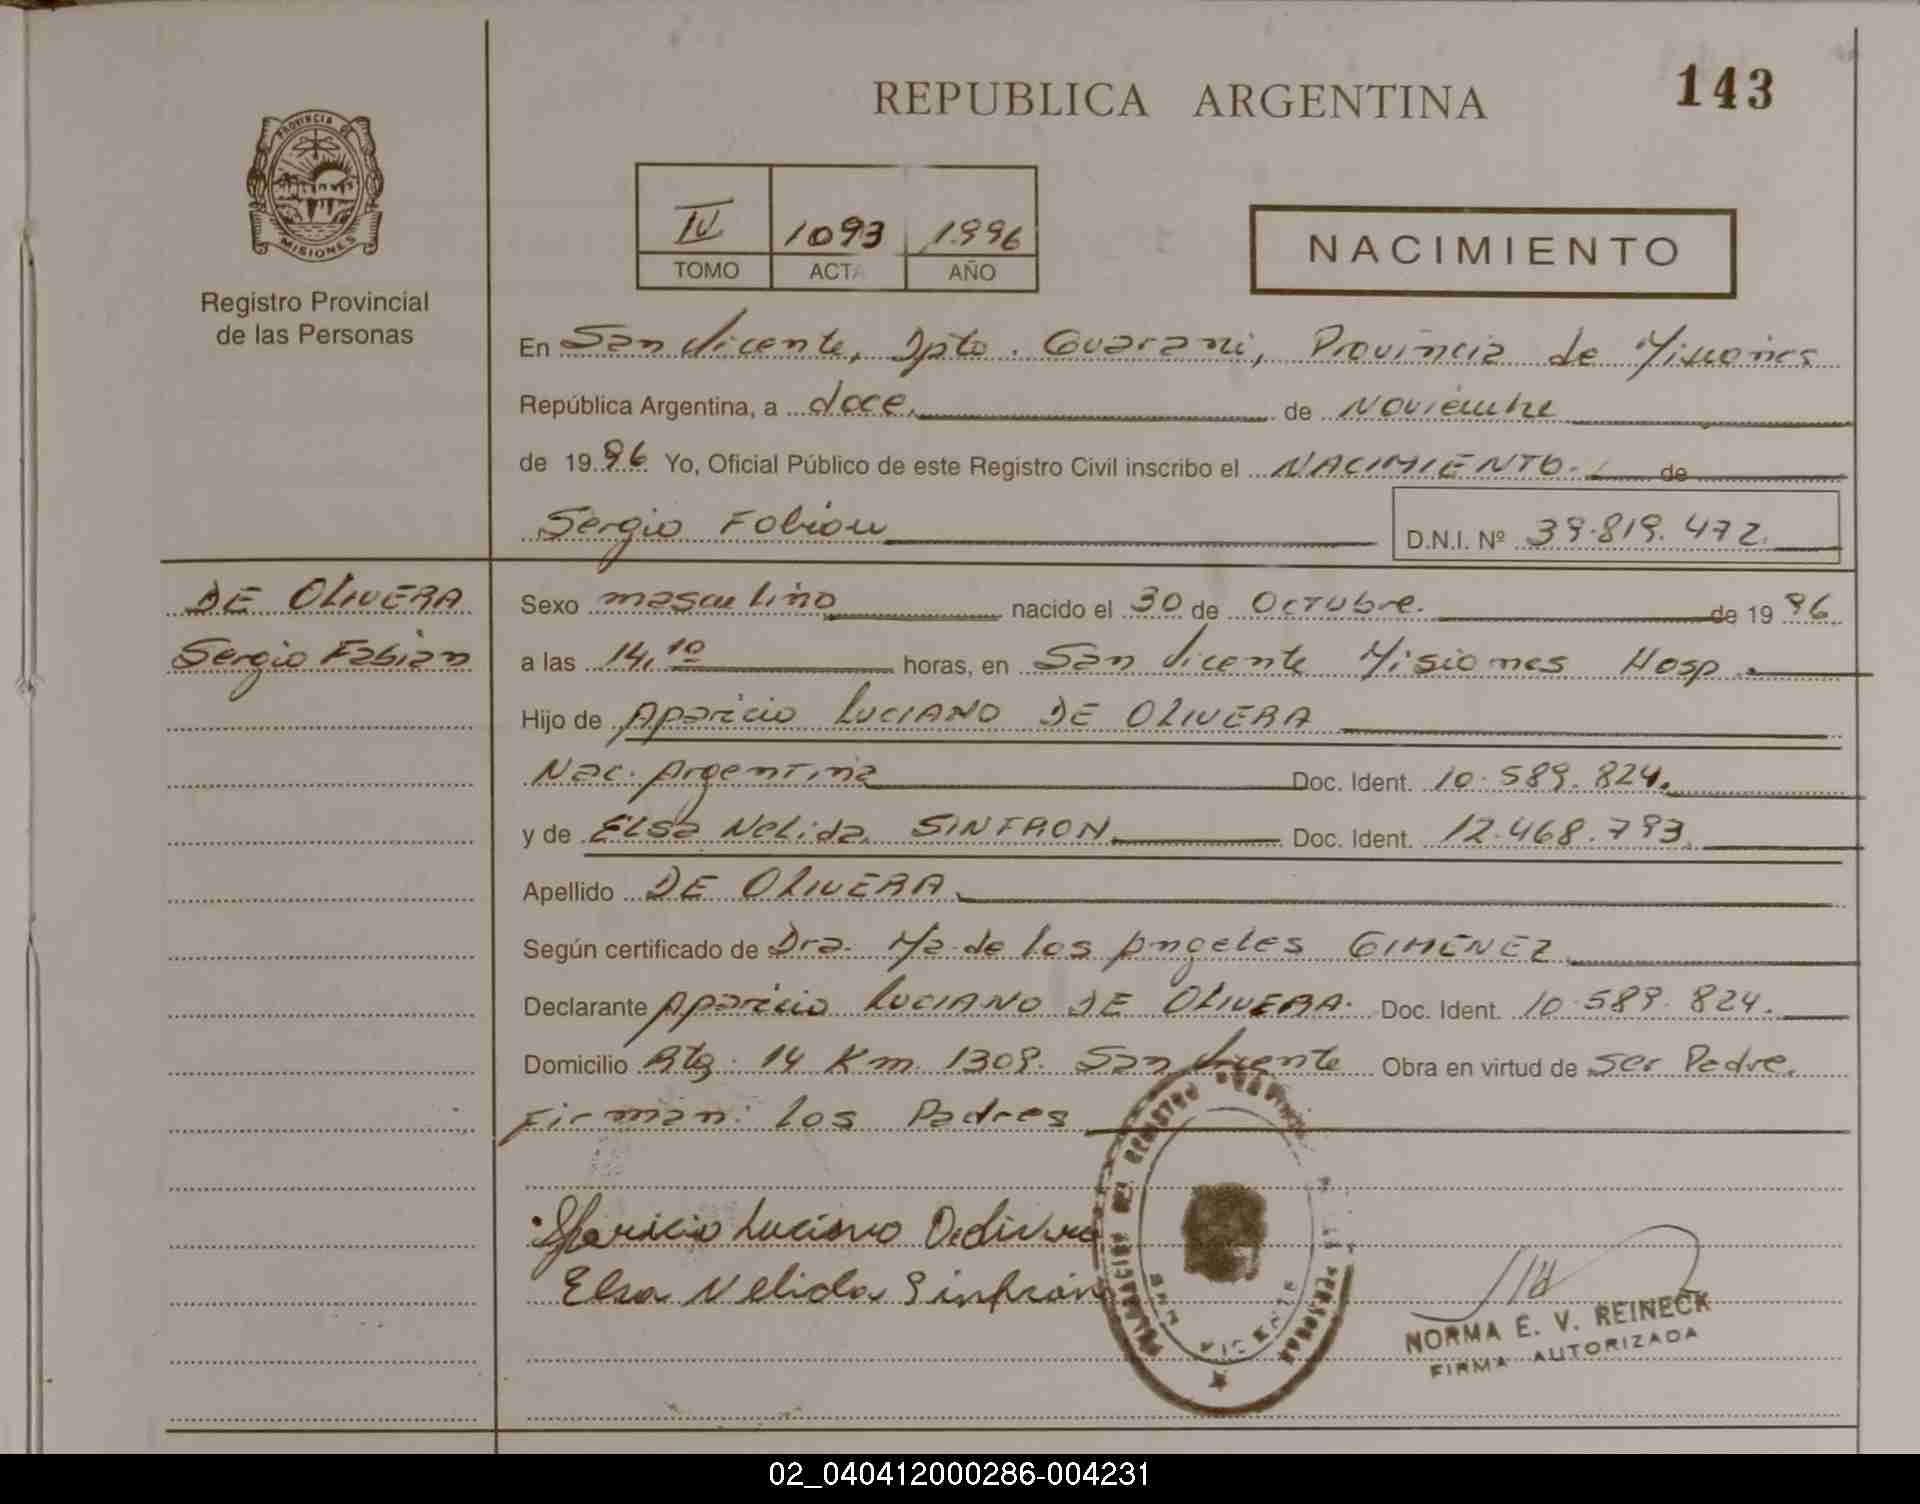 143
REPUBLICA ARGENTINA
PROVINCIA DE
MISIONES
Registro Provincial
de las Personas
IV 1093 1996
TOMO ACTA AÑO
NACIMIENTO
En San Vicente, Dpto. Guarani, Provincia de Misiones
República Argentina, a doce. de Noviembre
de 1996 Yo, Oficial Público de este Registro Civil inscribo el NACIMIENTO. de
Sergio Fabian D.N.I. Nº 39.819.472.
DE OLIVERA
Sergio Fabian
Sexo masculino nacido el 30 de Octubre. de 1996.
a las 14,10 horas, en San Vicente Misiones Hosp.
Hijo de Aparicio LUCIANO DE OLIVERA
Nac. Argentina Doc. Ident. 10.589.824.
y de Elsa Nelida SINFRON Doc. Ident. 12.468.793.
Apellido DE OLIVERA
Según certificado de Dra. Ma. de los Angeles GIMENEZ
Declarante Aparicio LUCIANO DE OLIVERA. Doc. Ident. 10.589.824.
Domicilio Rta. 14 Km 1309. San Vicente Obra en virtud de ser Padre.
Firman: los Padres
Aparicio Luciano Deolivera
Elsa Nelida Sinfron
SAN VICENTE
NORMA E. V. REINECK
FIRMA AUTORIZADA
02_040412000286-004231